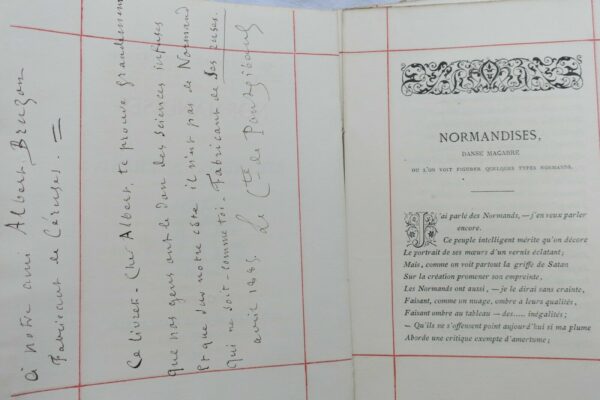 à notre ami Albert Bruzon
Fabricant de Céruses. =
Ce livret - cher Albert, te prouve grandement
que nos gens ont le don des sciences infuses
Et que sur notre côte il n'est pas de Normand
Qui ne soit - comme toi - Fabricant de Ses ruses.
Le Cte de
avril 1885.
NORMANDISES,
DANSE MACABRE
OU L'ON VOIT FIGURER QUELQUES TYPES NORMANDS.
J'ai parlé des Normands, — j'en veux parler
encore.
Ce peuple intelligent mérite qu'on décore
Le portrait de ses mœurs d'un vernis éclatant;
Mais, comme on voit partout la griffe de Satan
Sur la création promener son empreinte,
Les Normands ont aussi, — je le dirai sans crainte,
Faisant, comme un nuage, ombre à leurs qualités,
Faisant ombre au tableau — des..... inégalités;
— Qu'ils ne s'offensent point aujourd'hui si ma plume
Aborde une critique exempte d'amertume;